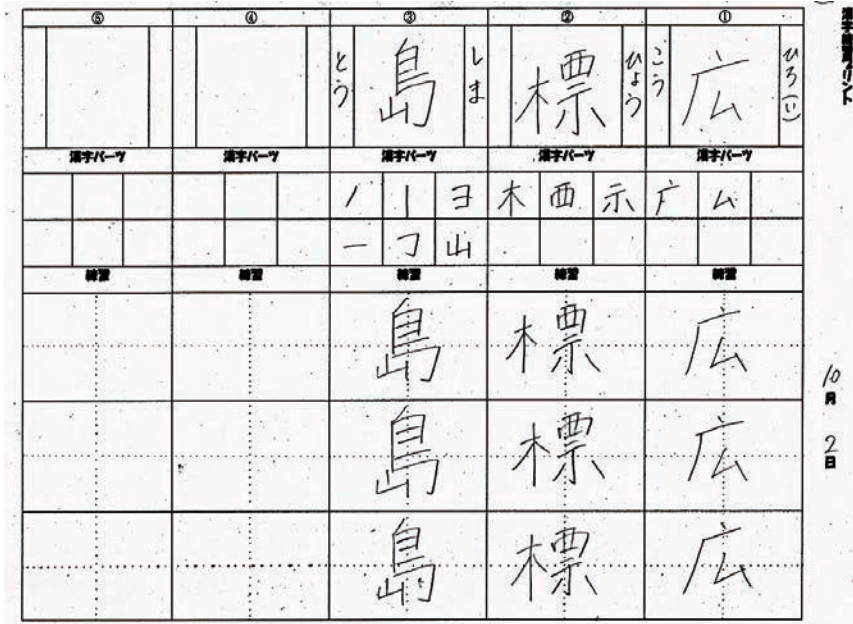 漢字練習プリント
10月2日
①
ひろ(い)
広
こう
漢字パーツ
广 ム
練習
広
広
広
②
ひょう
標
漢字パーツ
木 西 示
練習
標
標
標
③
しま
島
とう
漢字パーツ
ノ 丨 ヨ
一 コ 山
練習
島
島
島
④
漢字パーツ
練習
⑤
漢字パーツ
練習